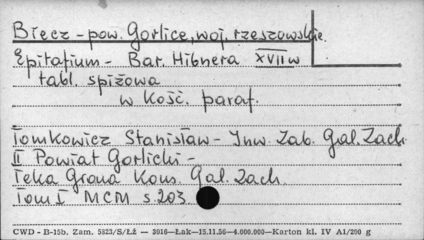 Biecz - pow. Gorlice, woj. rzeszowskie.
Epitafium - Bar. Hibnera XVII w
tabl. spiżowa
w kość. paraf.
Tomkowicz Stanisław - Inw. Zab. Gal. Zach.
II Powiat Gorlicki -
Teka Grona Kons. Gal. Zach.
Tom I MCM s. 203
CWD - B-15b. Zam. 5823/S/ŁŻ — 3016—Łak—15.11.56—4.000.000—Karton kl. IV A1/200 g